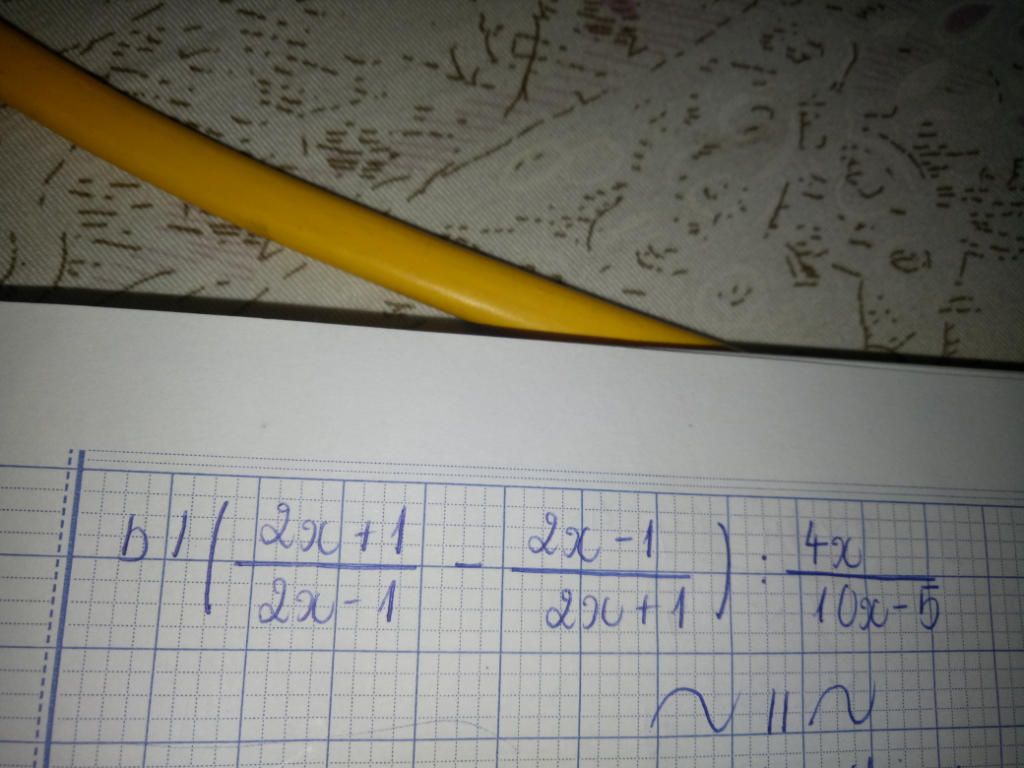 b) ( (2x + 1)/(2x - 1) - (2x - 1)/(2x + 1) ) : 4x/(10x - 5)
~ || ~